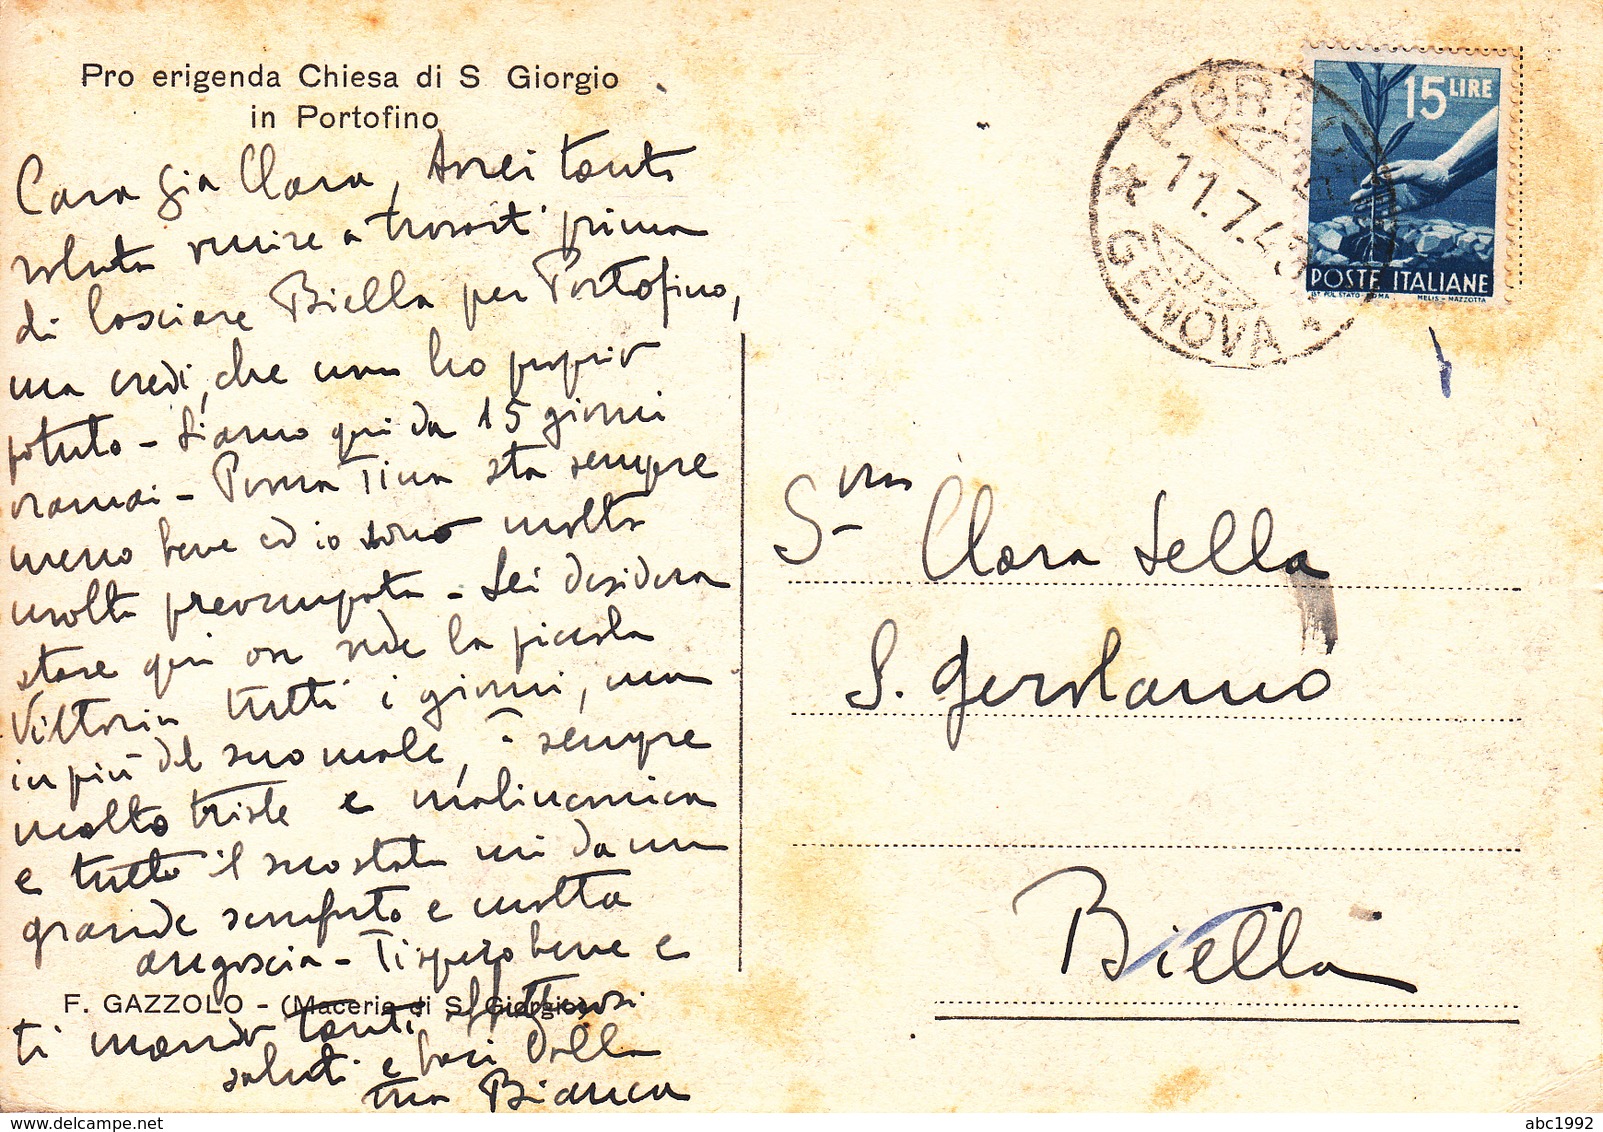 Pro erigenda Chiesa di S Giorgio
in Portofino
Cara Gia Clara, Avrei tanto
voluto venire a trovarti prima
di lasciare Biella per Portofino,
ma credi, che non ho proprio
potuto - Siamo qui da 15 giorni
oramai - Tina sta sempre
meno bene ed io sono molto
molto preoccupata - Lei desidera
stare qui ove vede la piccola
Vittoria tutti i giorni, ma
in più del suo male, è sempre
molto triste e malinconica
e tutto il suo stato mi da un
grande sconforto e molta
angoscia - Ti spero bene e
F. GAZZOLO - (Macerie di S. Giorgio)
ti mando tanti affettuosi
saluti e baci dalla
tua Bianca
PORTOFINO
11.7.4
GENOVA
15 LIRE
POSTE ITALIANE
IST. POL. STATO - ROMA MELIS - MAZZOTTA
Sra Clara Sella
S. Gerolamo
Biella
delcampe.net
abc1992